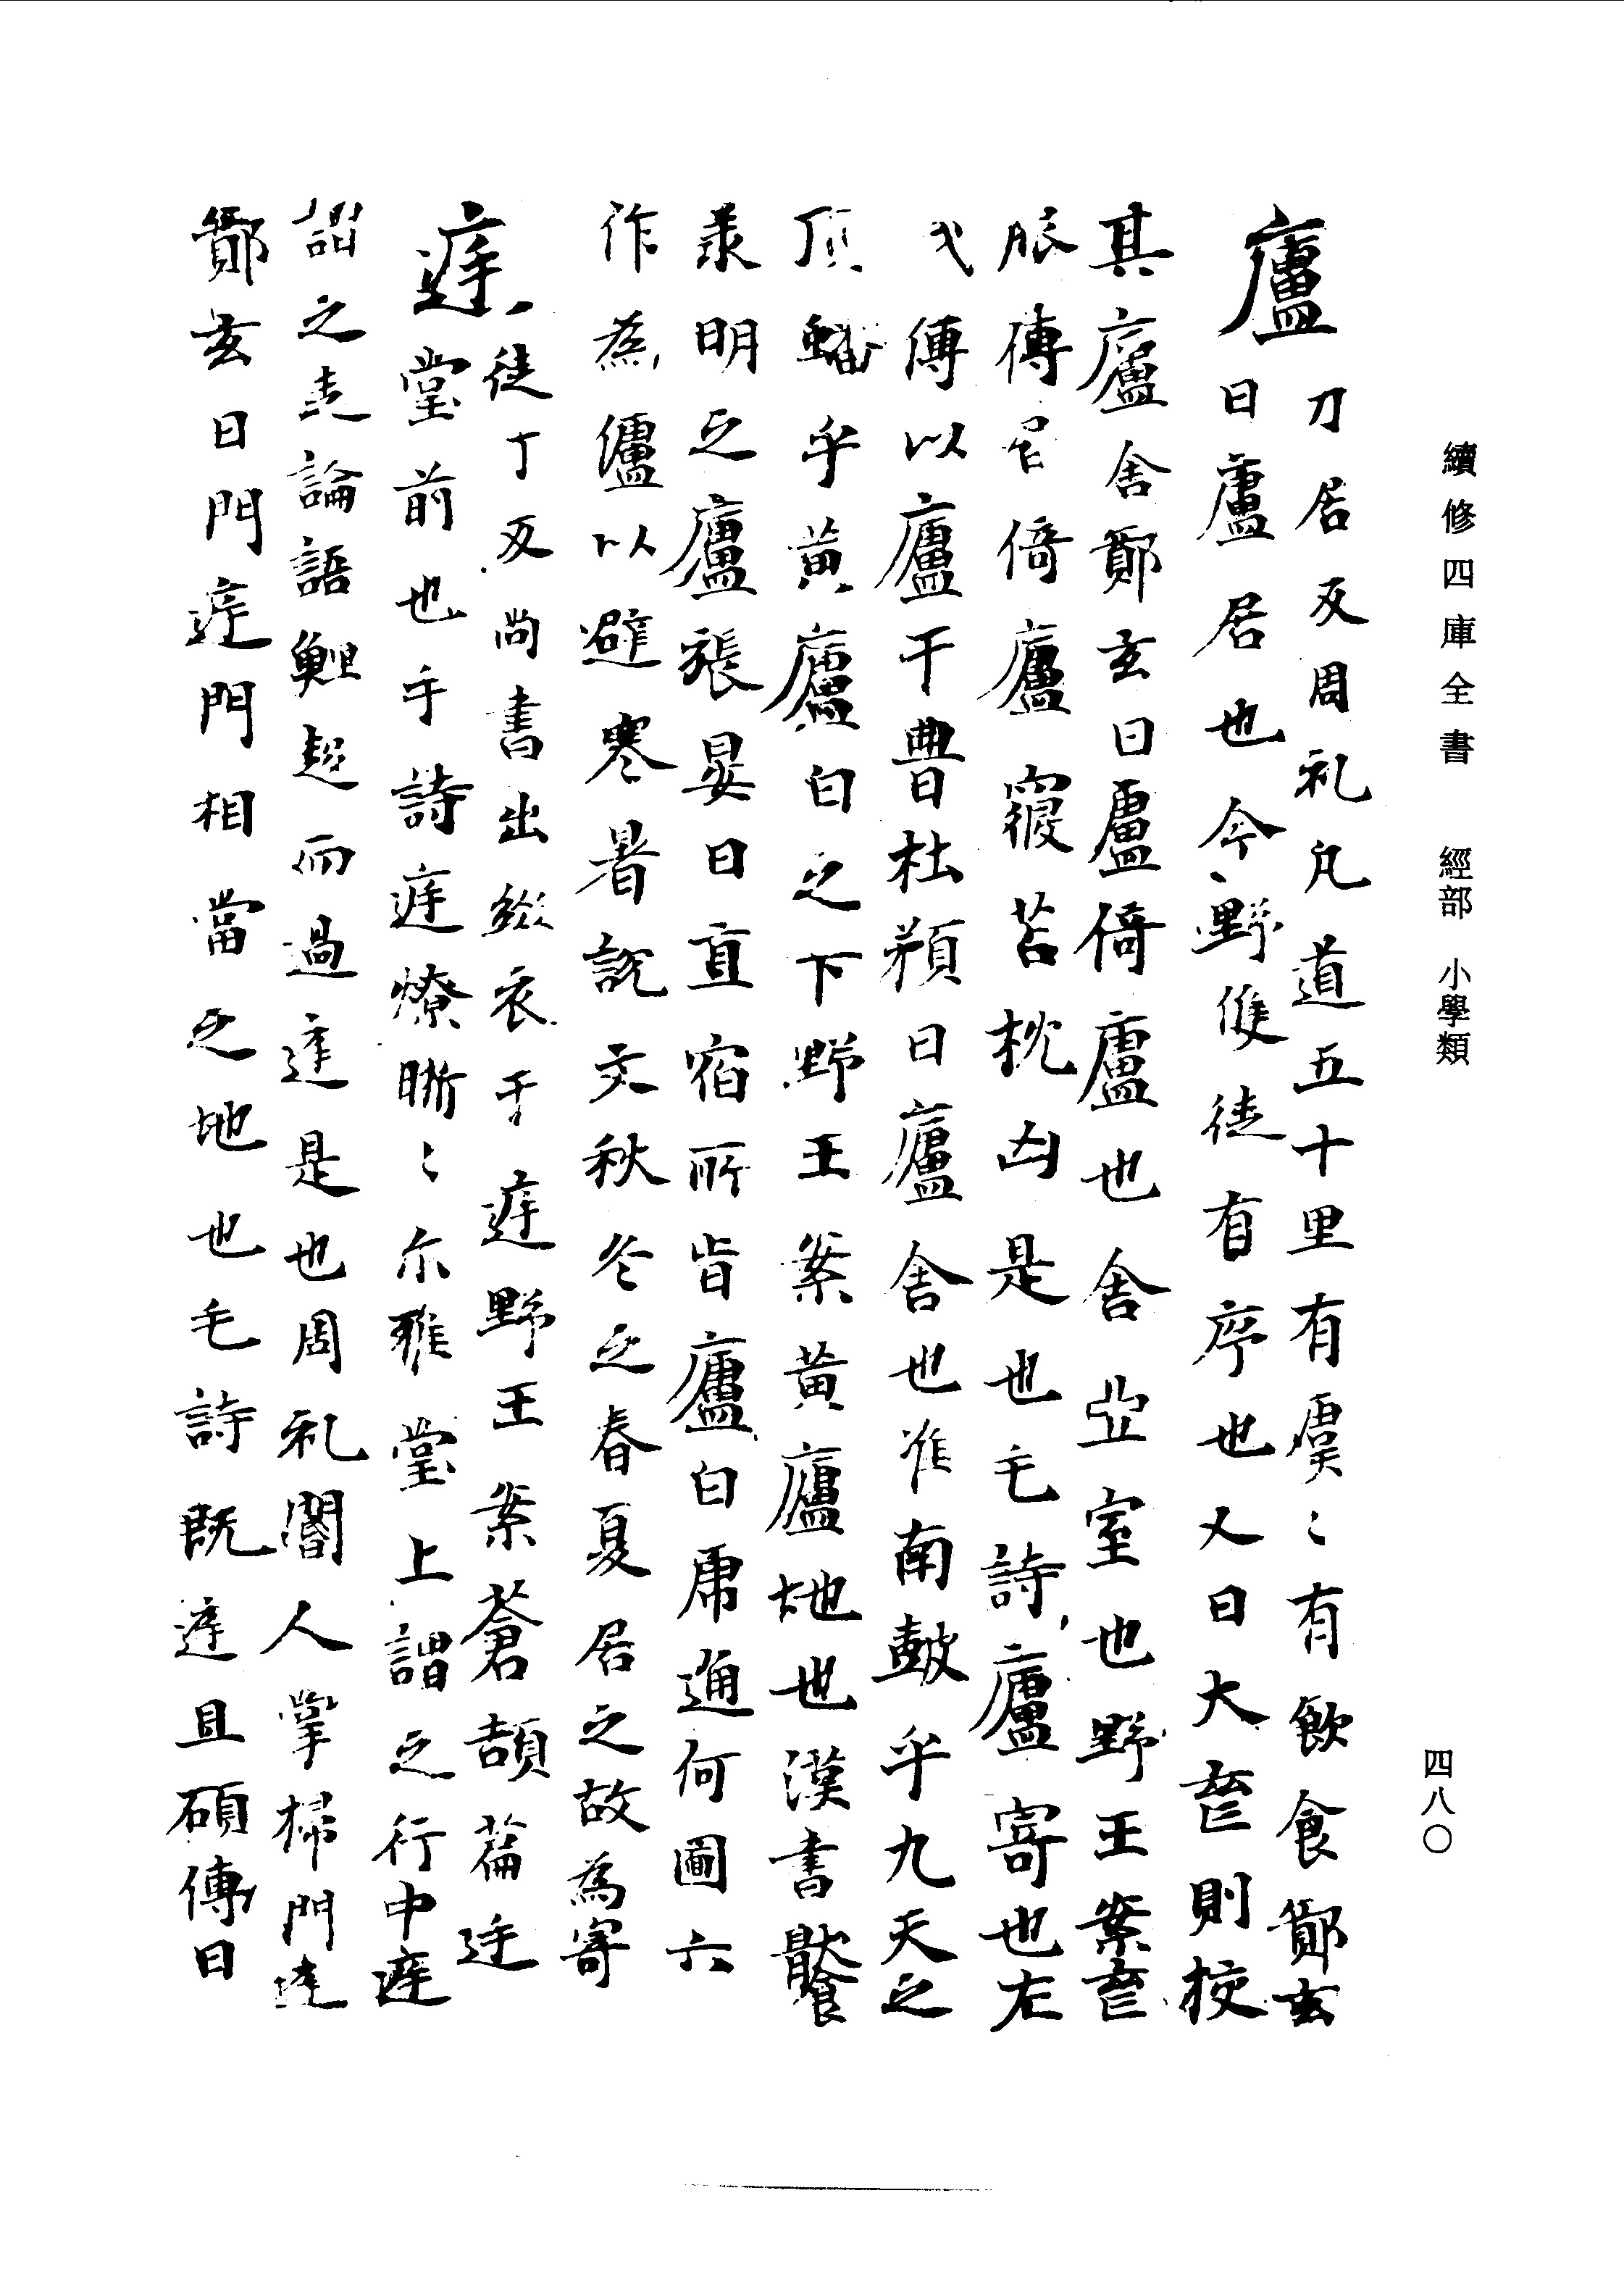 續修四庫全書　經部　小學類
四八〇
廬刀居反周礼凡道五十里有廬〻有飲食鄭玄
曰廬居也今野候徒有序也又曰大喪則授
其廬舍鄭玄曰廬倚廬也舍堊室也野王案喪
服傳居倚廬寢苫枕凷是也毛詩廬寄也左
氏傳以廬于曹杜預曰廬舍也淮南鼓乎九天之
頂蟠乎黄廬白之下野王案黄廬地也漢書嚴
羕明之廬張晏曰直宿所皆廬白虎通何圖六
作為廬以避寒暑說文秋冬之春夏居之故為寄
庭徒丁反尚書出綴衣于庭野王案蒼頡篇廷
堂前也乎詩庭燎晣〻尓雅堂上謂之行中庭
謂之走論語鯉趍而過庭是也周礼閽人掌掃門庭
鄭玄曰門庭門相當之地也毛詩既庭且碩傳曰